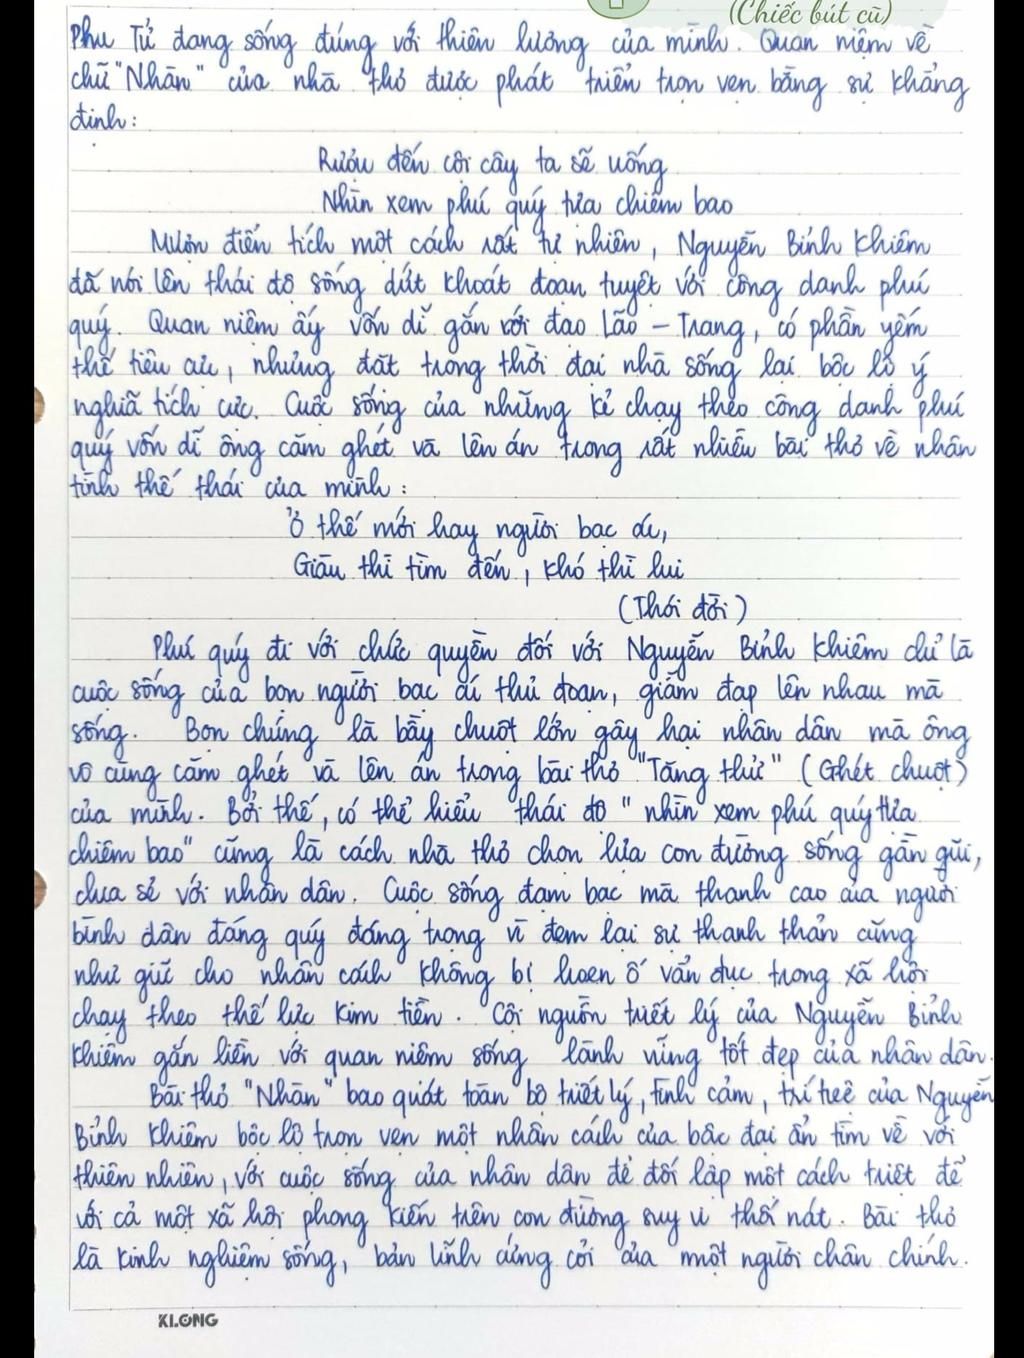 (Chiếc bút cũ)
Phu Tử đang sống đúng với thiên lương của mình. Quan niệm về
chữ "Nhàn" của nhà thơ được phát triển trọn vẹn bằng sự khẳng
định:
Rượu đến cội cây ta sẽ uống
Nhìn xem phú quý tựa chiêm bao
Mượn điển tích một cách rất tự nhiên, Nguyễn Bỉnh Khiêm
đã nói lên thái độ sống dứt khoát đoạn tuyệt với công danh phú
quý. Quan niệm ấy vốn dĩ gắn với đạo Lão - Trang, có phần yếm
thế tiêu cực, nhưng đặt trong thời đại nhà sống lại bộc lộ ý
nghĩa tích cực. Cuộc sống của những kẻ chạy theo công danh phú
quý vốn dĩ ông căm ghét và lên án trong rất nhiều bài thơ về nhân
tình thế thái của mình:
Ở thế mới hay người bạc ác,
Giàu thì tìm đến, khó thì lui
(Thói đời)
Phú quý đi với chức quyền đối với Nguyễn Bỉnh Khiêm chỉ là
cuộc sống của bọn người bạc ác thủ đoạn, giẫm đạp lên nhau mà
sống. Bọn chúng là bầy chuột lớn gây hại nhân dân mà ông
vô cùng căm ghét và lên án trong bài thơ "Tăng thử" (Ghét chuột)
của mình. Bởi thế, có thể hiểu thái độ "nhìn xem phú quý tựa
chiêm bao" cũng là cách nhà thơ chọn lựa con đường sống gần gũi,
chia sẻ với nhân dân. Cuộc sống đạm bạc mà thanh cao của người
bình dân đáng quý đáng trọng vì đem lại sự thanh thản cũng
như giữ cho nhân cách không bị hoen ố vẩn đục trong xã hội
chạy theo thế lực kim tiền. Cội nguồn triết lý của Nguyễn Bỉnh
Khiêm gắn liền với quan niệm sống lành vững tốt đẹp của nhân dân.
Bài thơ "Nhàn" bao quát toàn bộ triết lý, tình cảm, trí tuệ của Nguyễn
Bỉnh Khiêm bộc lộ trọn vẹn một nhân cách của bậc đại ẩn tìm về với
thiên nhiên, với cuộc sống của nhân dân để đối lập một cách triệt để
với cả một xã hội phong kiến trên con đường suy vi thối nát. Bài thơ
là kinh nghiệm sống, bản lĩnh cứng cỏi của một người chân chính.
KLONG